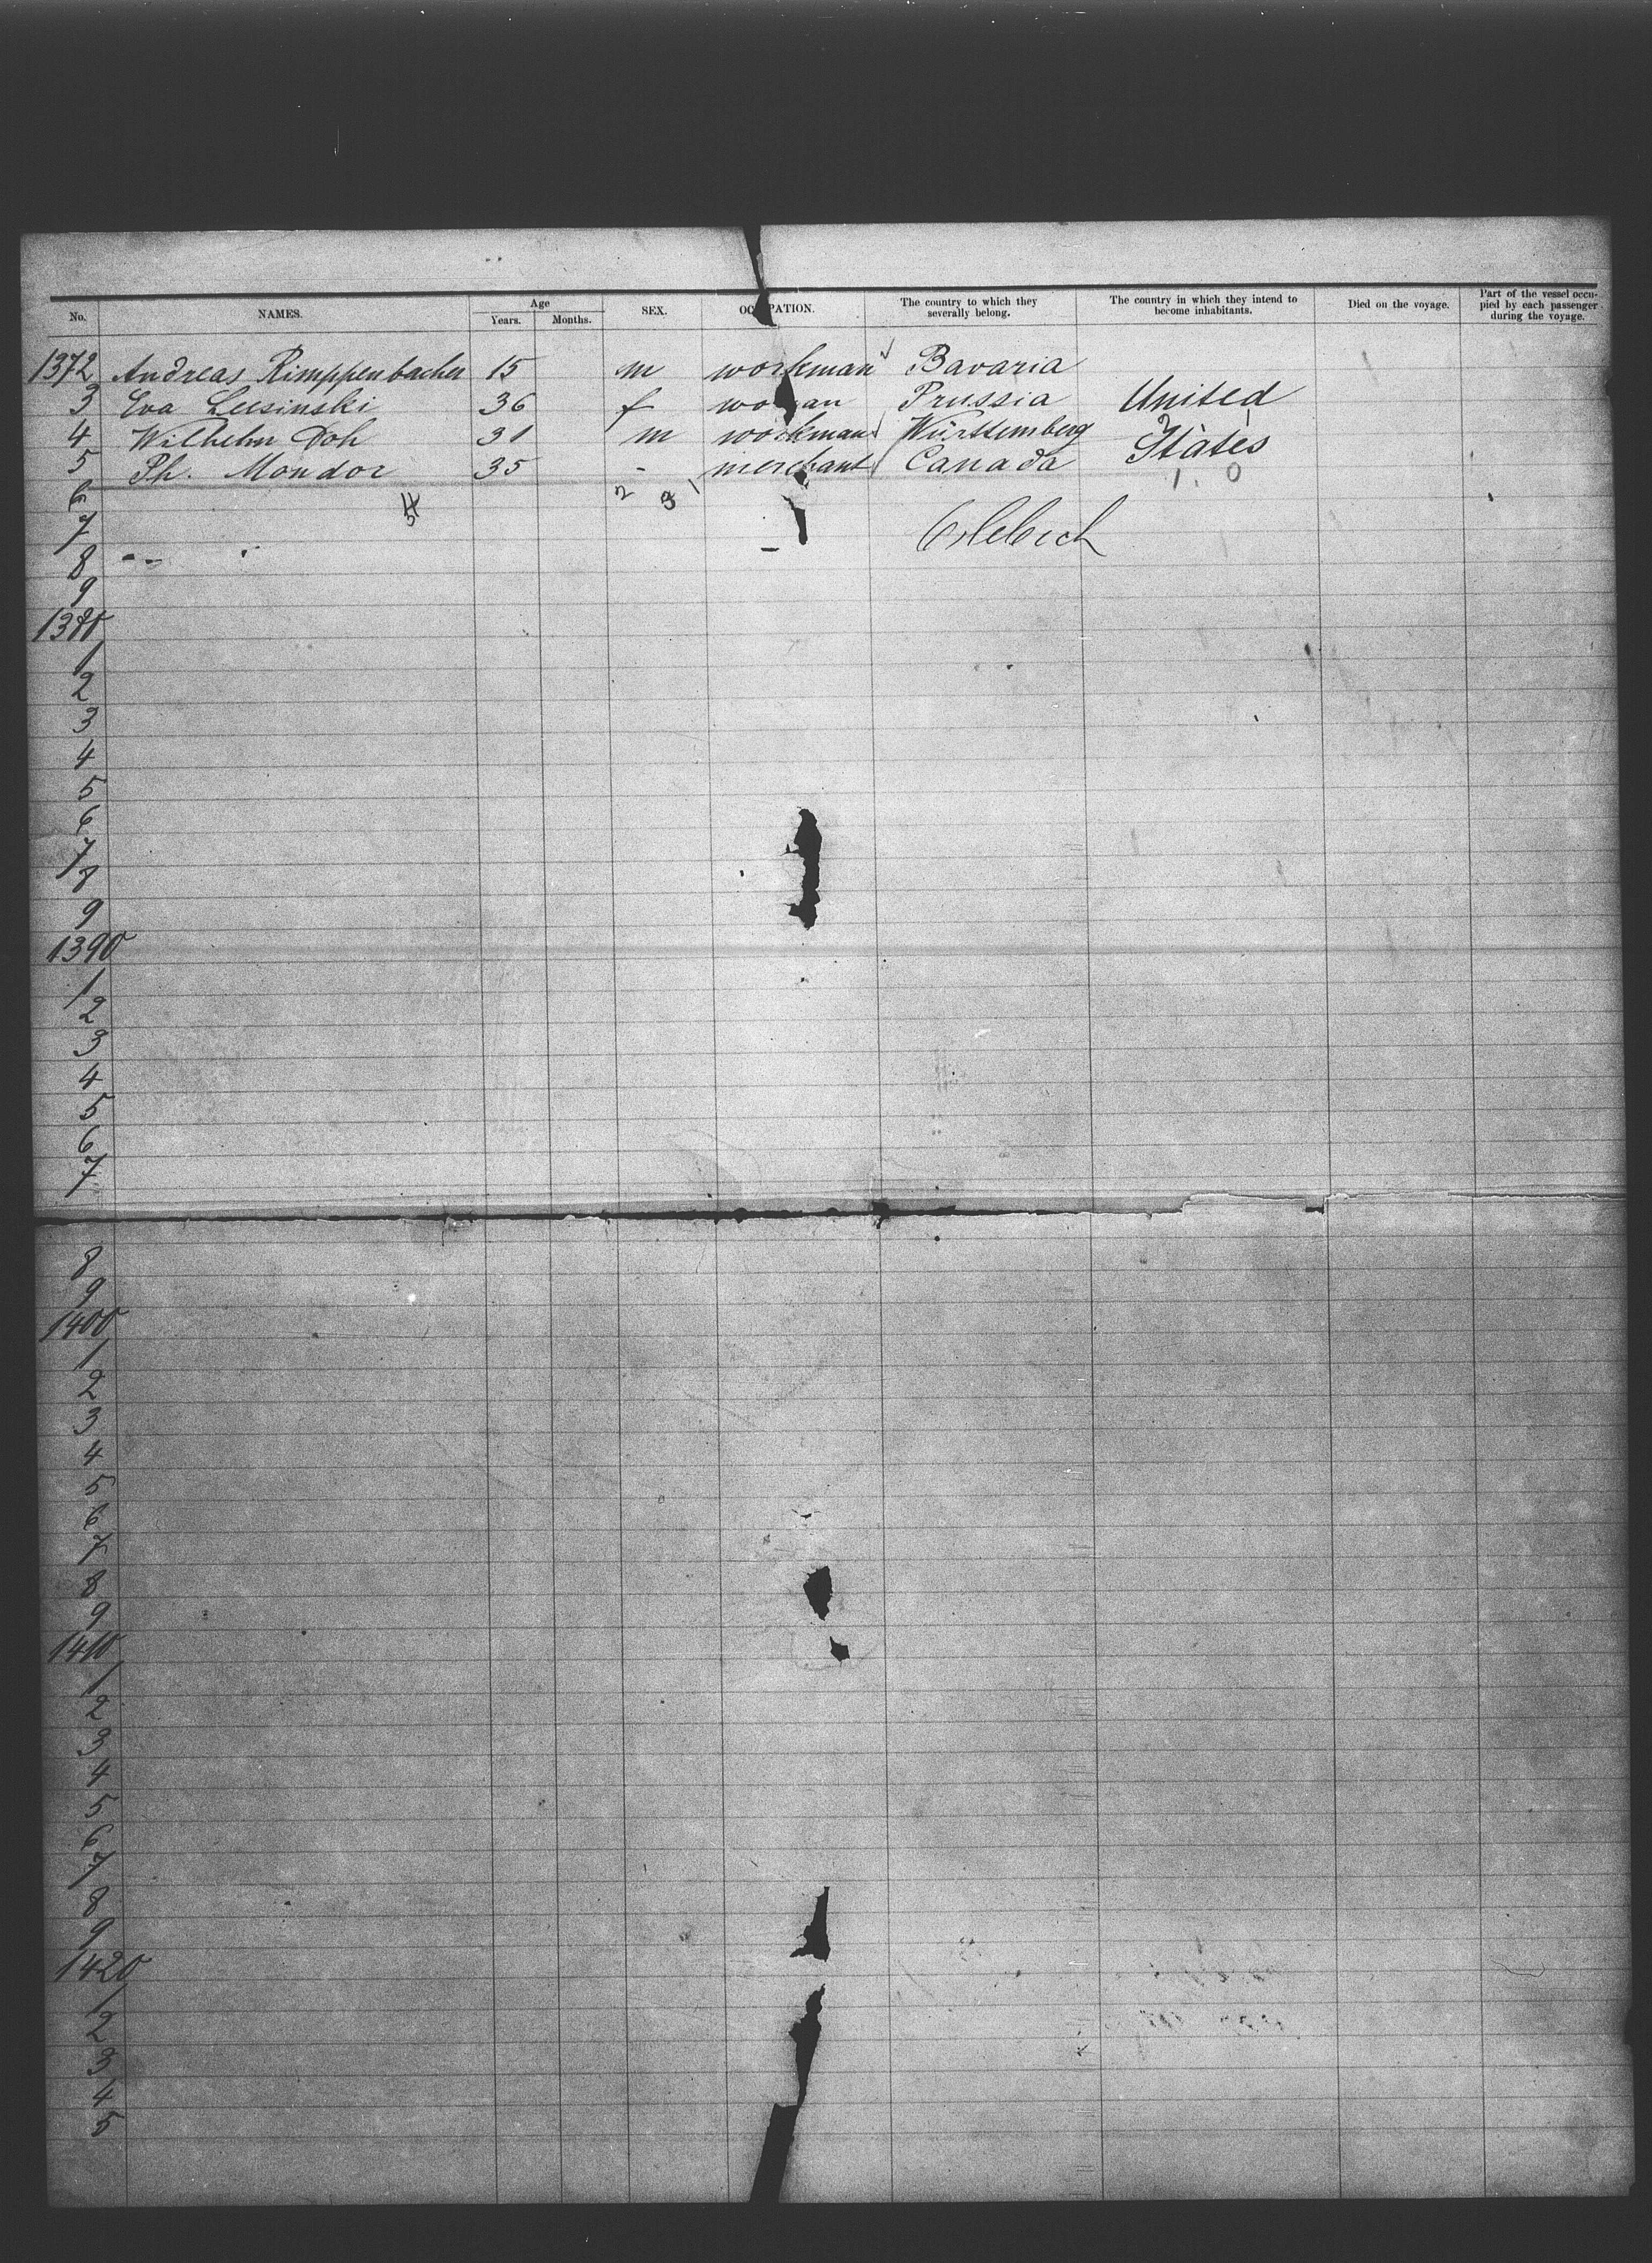 No. NAMES. Age Years. Months. SEX. OCCUPATION. The country to which they severally belong. The country in which they intend to become inhabitants. Died on the voyage. Part of the vessel occupied by each passenger during the voyage.
1372 Andreas Rimppenbacher 15 m workman Bavaria
3 Eva Lusinski 36 f woman Prussia United
4 Wilhelm Doh 31 m workman Württemberg States
5 Ph. Mondor 35 - merchant Canada
6 2 3 1 1. 0
7
8
9
1380
1
2
3
4
5
6
7
8
9
1390
1
2
3
4
5
6
7
8
9
1400
1
2
3
4
5
6
7
8
9
1410
1
2
3
4
5
6
7
8
9
1420
1
2
3
4
5